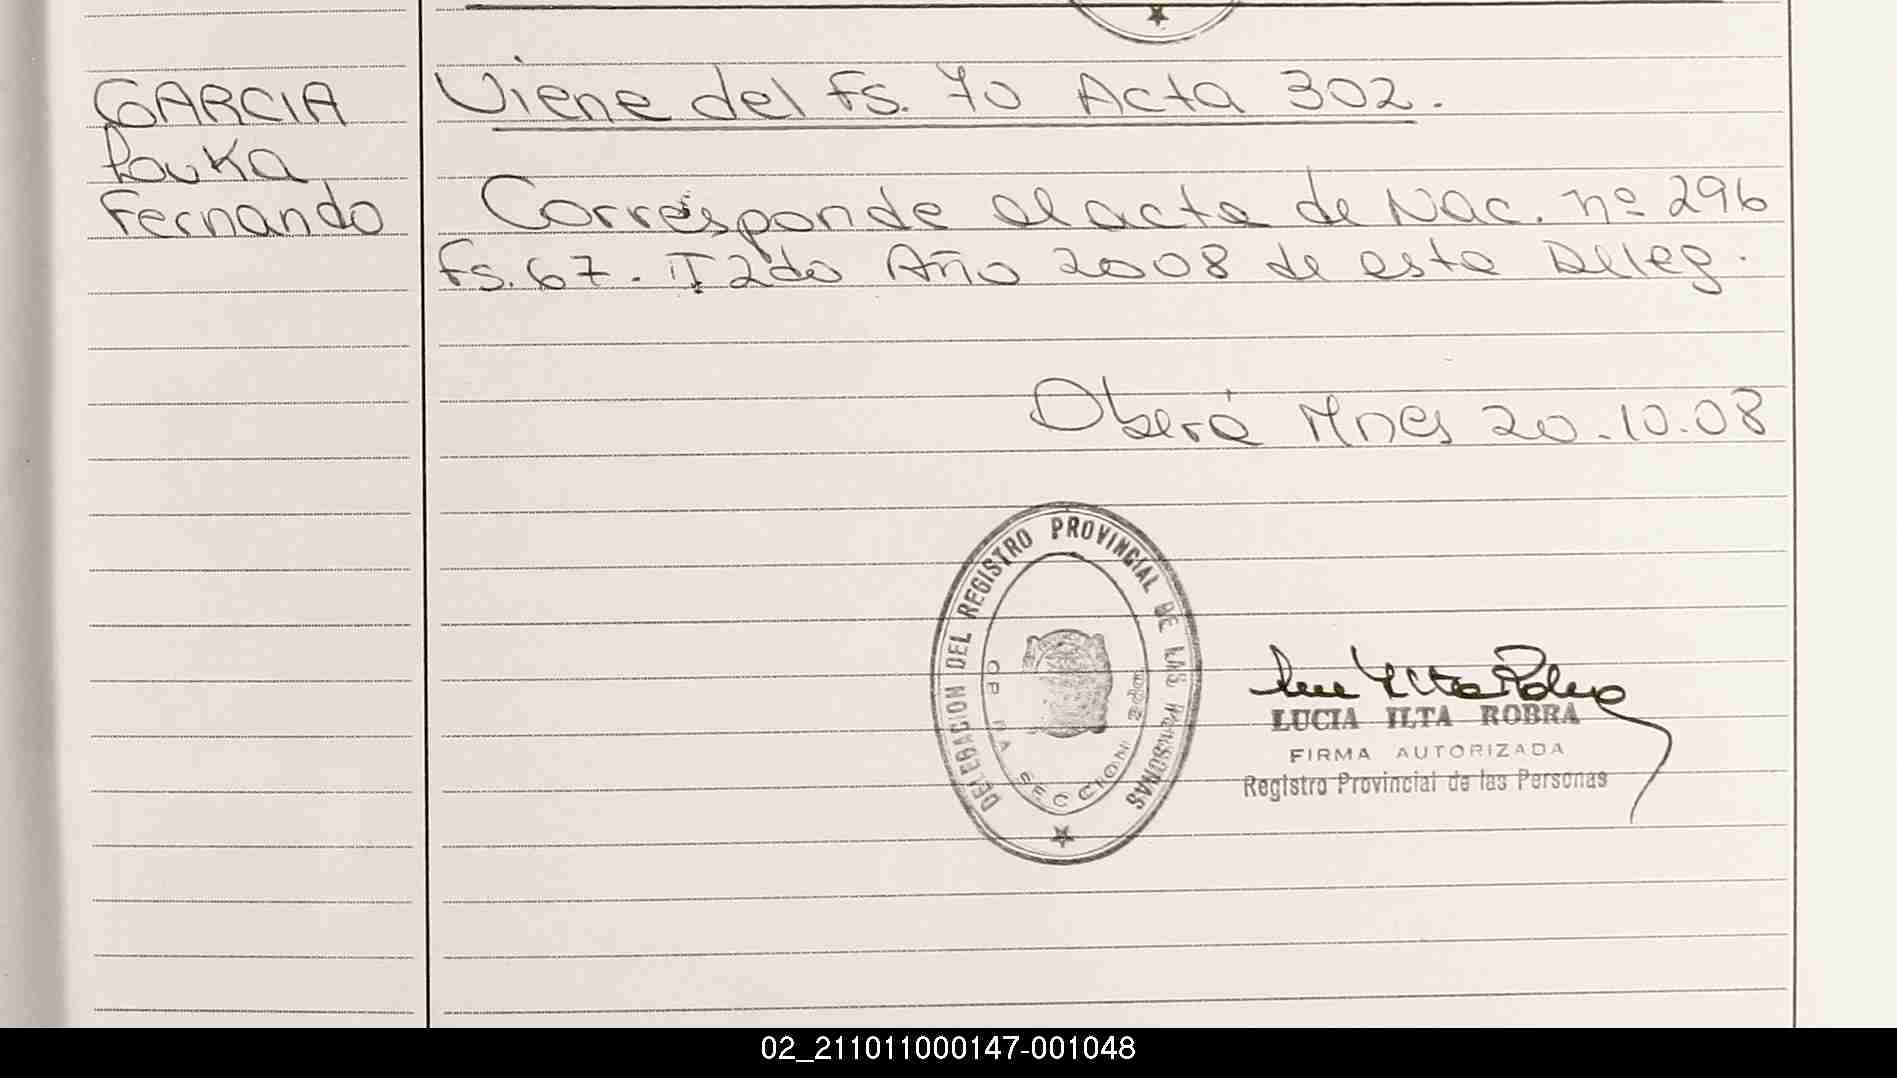 GARCIA
Louka
Fernando
Viene del Fs. 70 Acta 302.
Corresponde al acta de Nac. nº 296
Fs. 67. T 2do Año 2008 de esta Deleg.
Oberá Mnes 20.10.08
DELEGACION DEL REGISTRO PROVINCIAL DE LAS PERSONAS
SECCION 2da
LUCIA ILTA ROBRA
FIRMA AUTORIZADA
Registro Provincial de las Personas
02_211011000147-001048